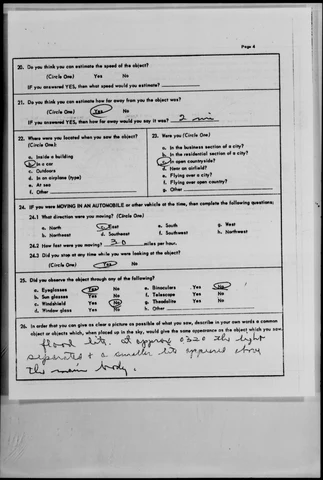 Page 4
20. Do you think you can estimate the speed of the object?
(Circle One) Yes No
IF you answered YES, then what speed would you estimate?
21. Do you think you can estimate how far away from you the object was?
(Circle One) Yes No
IF you answered YES, then how far away would you say it was? 2 mi
22. Where were you located when you saw the object?
(Circle One):
a. Inside a building
b. In a car
c. Outdoors
d. In an airplane (type)
e. At sea
f. Other
23. Were you (Circle One)
a. In the business section of a city?
b. In the residential section of a city?
c. In open countryside?
d. Near an airfield?
e. Flying over a city?
f. Flying over open country?
g. Other
24. IF you were MOVING IN AN AUTOMOBILE or other vehicle at the time, then complete the following questions:
24.1 What direction were you moving? (Circle One)
a. North c. East e. South g. West
b. Northeast d. Southeast f. Southwest h. Northwest
24.2 How fast were you moving? 30 miles per hour.
24.3 Did you stop at any time while you were looking at the object?
(Circle One) Yes No
25. Did you observe the object through any of the following?
a. Eyeglasses Yes No e. Binoculars Yes No
b. Sun glasses Yes No f. Telescope Yes No
c. Windshield Yes No g. Theodolite Yes No
d. Window glass Yes No h. Other
26. In order that you can give as clear a picture as possible of what you saw, describe in your own words a common
object or objects which, when placed up in the sky, would give the same appearance as the object which you saw.
flood lite. at approx 0320 the light
separated & a smaller lite appeared above
the main body.